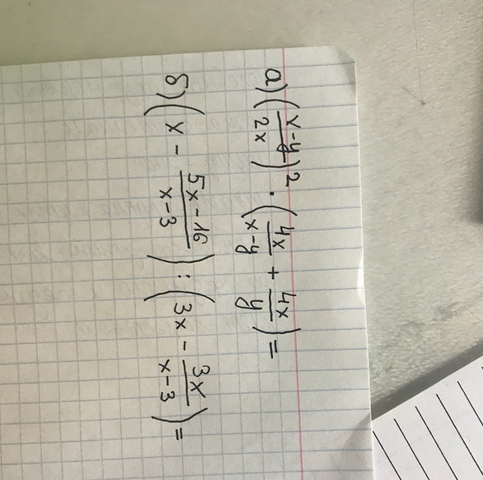 а) ((x-y)/2x)² · (4x/(x-y) + 4x/y) =
б) (x - (5x-16)/(x-3)) : (3x - 3x/(x-3)) =